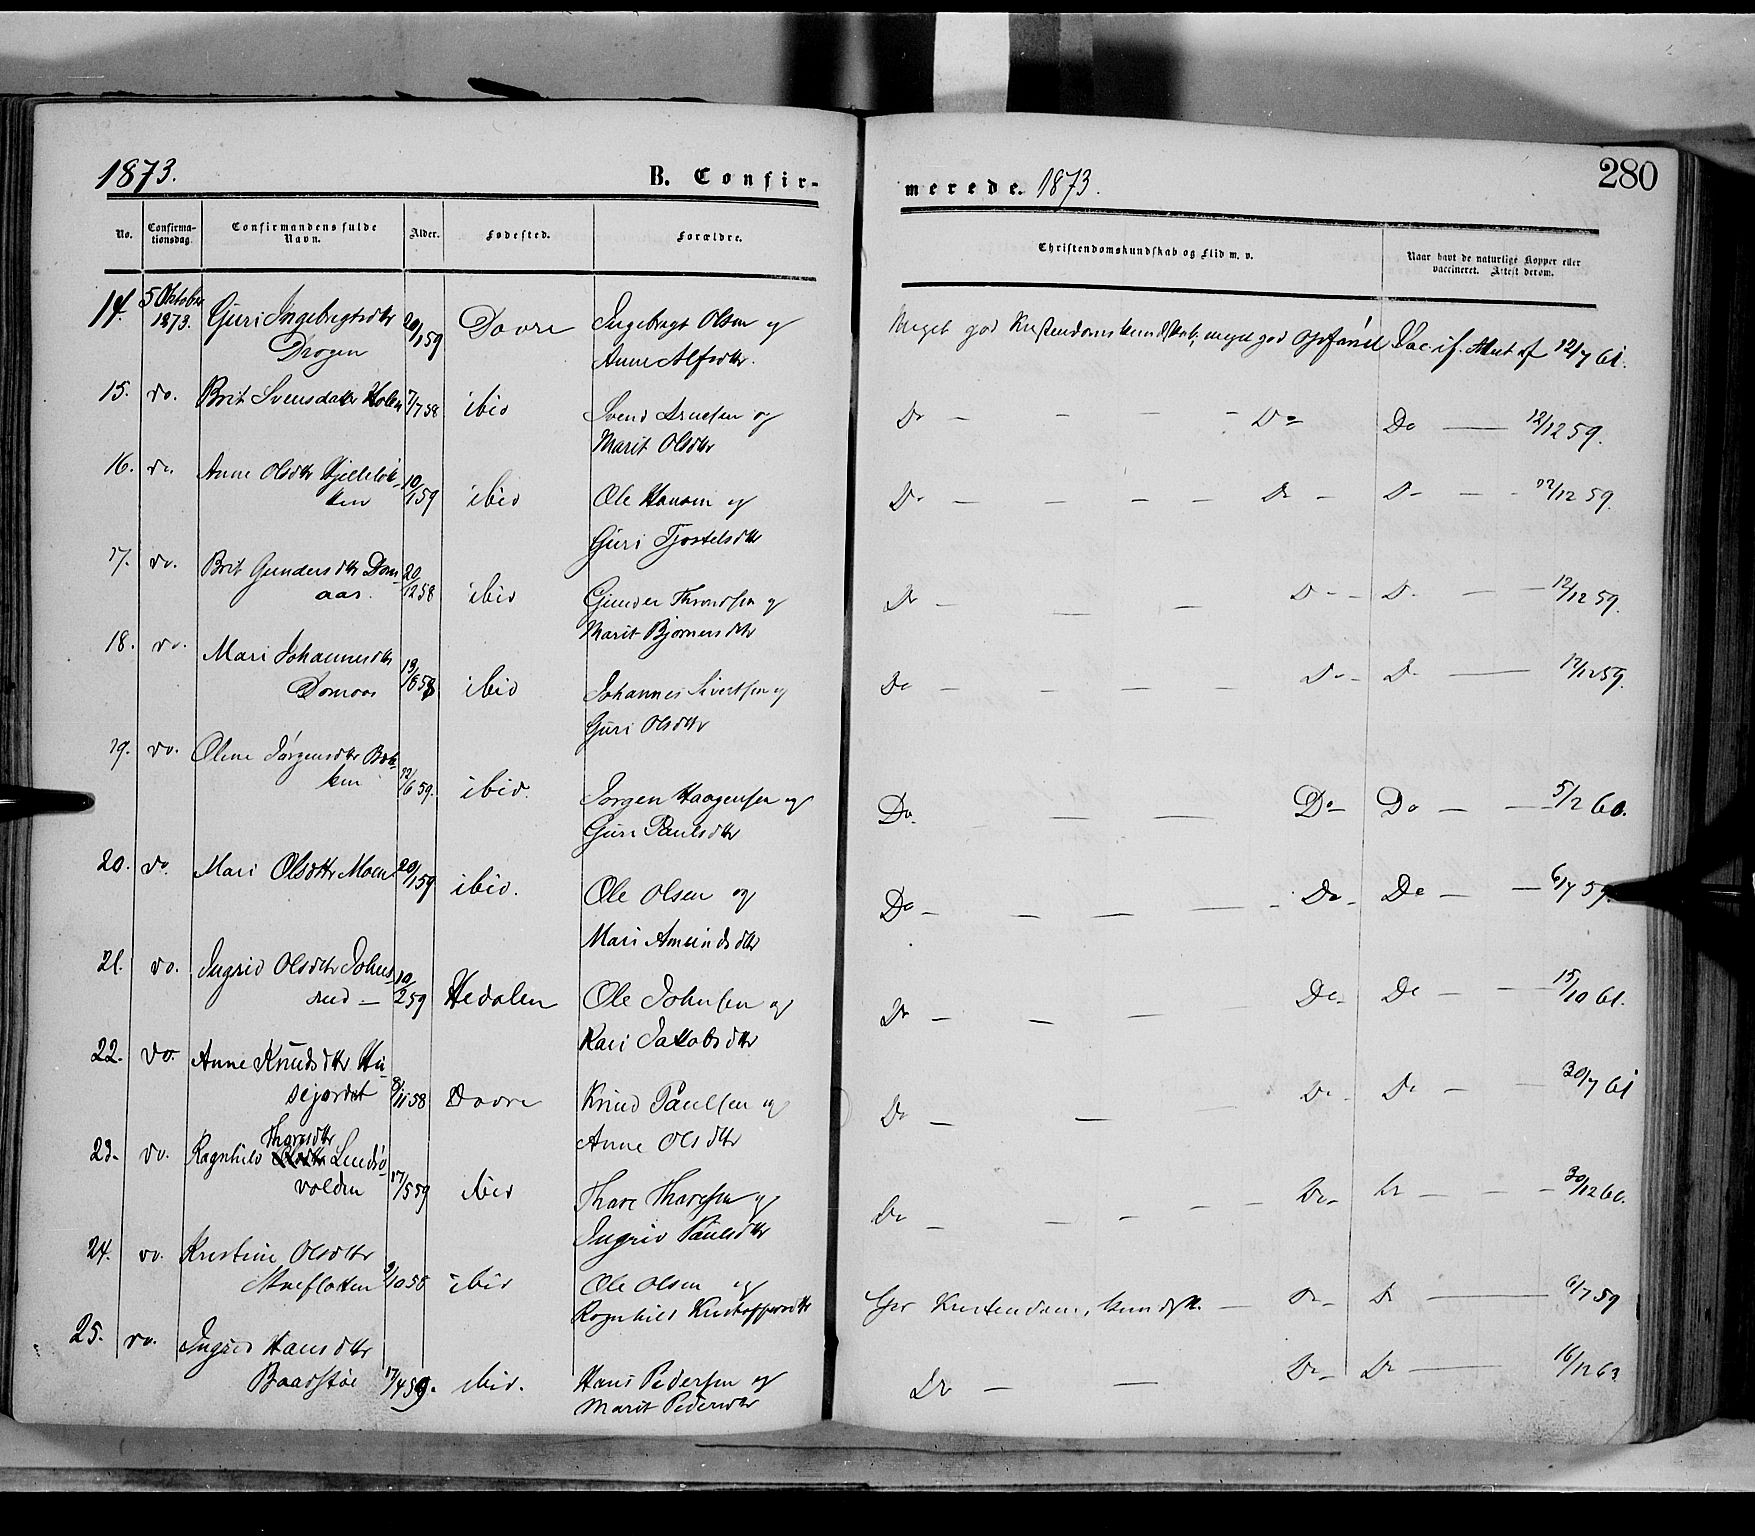 1873.
B. Confir-
merede. 1873.
280
No.
Confirma-
tionsdag.
Confirmandens fulde
Navn.
Alder.
Fødested.
Forældre.
Christendomskundskab og Flid m. v.
Naar havt de naturlige Kopper eller
vaccineret. Attest derom.
14. 5 Oktober 1873. Guri Ingebregtsdtr 20/1 59 Dovre Ingebregt Olsen og Meget god Kristendomskundskab, meget god Opførsel Vac. if. Attest af 12/7 61.
Drogen Anne Alfsdtr.
15. do. Brit Svensdatter Holen 7/7 58 ibid Svend Arnesen og Do — — — — Do Do — 12/12 59.
Marit Olsdtr
16. do Anne Olsdtr 10/1 59 ibid Ole Hansen og Do — — — — Do — D — — 12/12 59.
ken Guri Tjostelsdtr
17. do. Brit Gundersdtr Dom- 20/12 58 ibid Gunder Throndsen og Do — — — D — D — — 12/12 59.
aas. Marit Bjørnersdtr
18. do. Mari Johannesdtr ibid Johannes Sivertsen og Do — — — — Do — D — 12/12 59.
Domaas Guri Olsdtr
19. do. Oline Jørgensdtr Bak- 12/6 59. ibid. Jørgen Haagensen og Do — — Do — Do — — 5/2 60.
ken Guri Paulsdtr
20. do. Mari Olsdtr Moen 20/1 59 ibid. Ole Olsen og Do — — — — — Do — Do — — 6/7 59.
Mari Amundsdtr
21. do. Ingrid Olsdtr Johns- 10/2 59 Hedalen Ole Johnsen og Do — — — Do — Do — — 15/10 61.
rud — Kari Jakobsdtr
22. do. Anne Knudsdtr Hu- 8/11 58 Dovre Knud Paulsen og Do — — Do — Do — — 30/7 61
sejordet Anne Olsdtr
Thoresdtr
23. do. Ragnhild 17/5 59 ibid Thore Thoresen og Do — — — — — Do — Do — — — 30/12 60.
volden Ingrid Paulsdtr
24. do. Kristine Olsdtr ibid Ole Olsen og Kristendoms kundsk. — Do — D — 6/7 59
Ragnhild Kristoffersdtr
25. do. Ingrid Hansdtr 17/4 59. ibid. Hans Pedersen og Do — — Do — Do — 16/12 63
Baadstøe Marit Pedersdtr